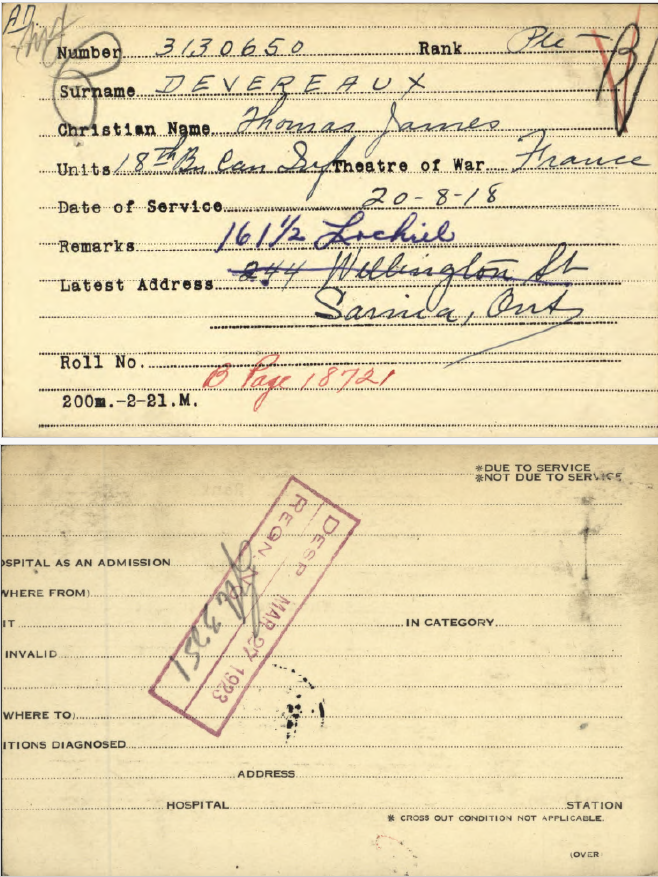 AD
Number 3130650 Rank Pte
B
Surname DEVEREAUX
Christian Name Thomas James
Units 18th Bn Can Inf Theatre of War France
Date of Service 20-8-18
Remarks 161½ Lochiel
Latest Address 244 Wellington St
Sarnia, Ont
Roll No. B Page 18721
200m.-2-21.M.
*DUE TO SERVICE
*NOT DUE TO SERVICE
DESP. MAR 27 1923
REGN. NO.
OSPITAL AS AN ADMISSION
WHERE FROM)
IT IN CATEGORY
INVALID
WHERE TO)
ITIONS DIAGNOSED
ADDRESS
HOSPITAL STATION
* CROSS OUT CONDITION NOT APPLICABLE.
(OVER